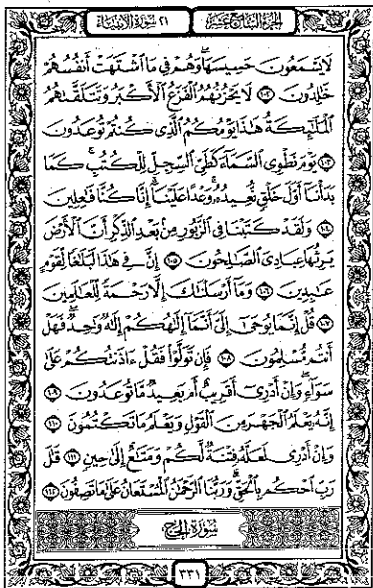 الجزء السابع عشر
٢١ سورة الأنبياء
لَا يَسْمَعُونَ حَسِيسَهَا وَهُمْ فِي مَا ٱشْتَهَتْ أَنفُسُهُمْ
خَٰلِدُونَ ١٠٢ لَا يَحْزُنُهُمُ ٱلْفَزَعُ ٱلْأَكْبَرُ وَتَتَلَقَّىٰهُمُ
ٱلْمَلَٰٓئِكَةُ هَٰذَا يَوْمُكُمُ ٱلَّذِي كُنتُمْ تُوعَدُونَ
١٠٣ يَوْمَ نَطْوِي ٱلسَّمَآءَ كَطَيِّ ٱلسِّجِلِّ لِلْكُتُبِ كَمَا
بَدَأْنَآ أَوَّلَ خَلْقٍ نُّعِيدُهُۥ وَعْدًا عَلَيْنَآ إِنَّا كُنَّا فَٰعِلِينَ
١٠٤ وَلَقَدْ كَتَبْنَا فِي ٱلزَّبُورِ مِنۢ بَعْدِ ٱلذِّكْرِ أَنَّ ٱلْأَرْضَ
يَرِثُهَا عِبَادِيَ ٱلصَّٰلِحُونَ ١٠٥ إِنَّ فِي هَٰذَا لَبَلَٰغًا لِّقَوْمٍ
عَٰبِدِينَ ١٠٦ وَمَآ أَرْسَلْنَٰكَ إِلَّا رَحْمَةً لِّلْعَٰلَمِينَ
١٠٧ قُلْ إِنَّمَا يُوحَىٰٓ إِلَيَّ أَنَّمَآ إِلَٰهُكُمْ إِلَٰهٌ وَٰحِدٌ فَهَلْ
أَنتُم مُّسْلِمُونَ ١٠٨ فَإِن تَوَلَّوْا۟ فَقُلْ ءَاذَنتُكُمْ عَلَىٰ
سَوَآءٍ وَإِنْ أَدْرِيٓ أَقَرِيبٌ أَم بَعِيدٌ مَّا تُوعَدُونَ ١٠٩
إِنَّهُۥ يَعْلَمُ ٱلْجَهْرَ مِنَ ٱلْقَوْلِ وَيَعْلَمُ مَا تَكْتُمُونَ ١١٠
وَإِنْ أَدْرِي لَعَلَّهُۥ فِتْنَةٌ لَّكُمْ وَمَتَٰعٌ إِلَىٰ حِينٍ ١١١ قَٰلَ
رَبِّ ٱحْكُم بِٱلْحَقِّ وَرَبُّنَا ٱلرَّحْمَٰنُ ٱلْمُسْتَعَانُ عَلَىٰ مَا تَصِفُونَ ١١٢
سورة الحج
٣٣١